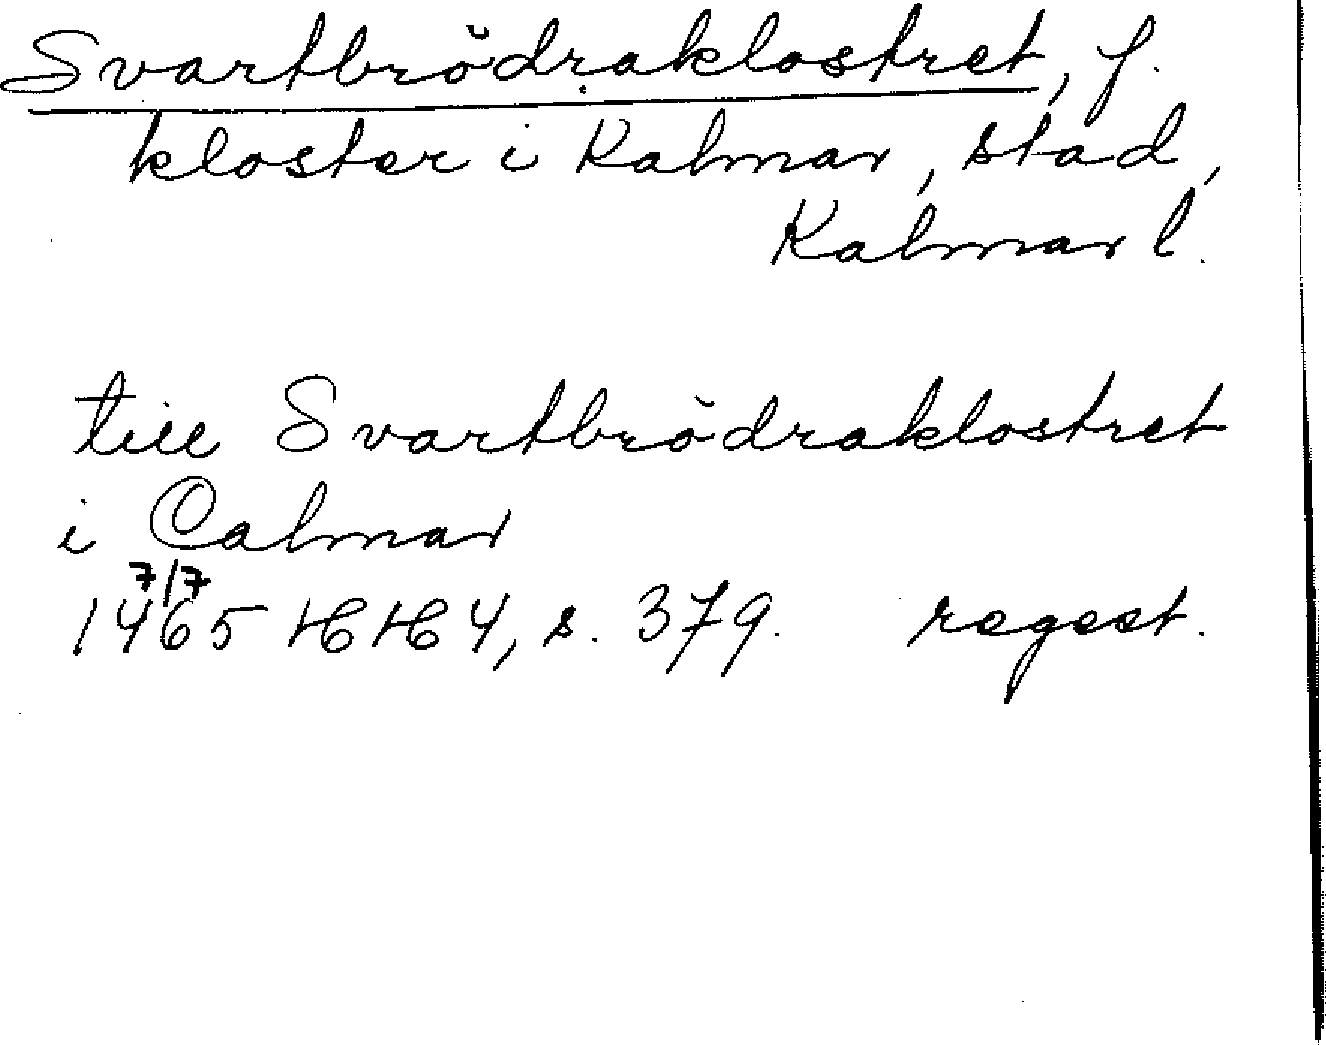 Svartbrödraklostret, f.
kloster i Kalmar, stad,
Kalmar l.
till Svartbrödraklostret
i Calmar
7/7
1465 HH 4, s. 379. regest.